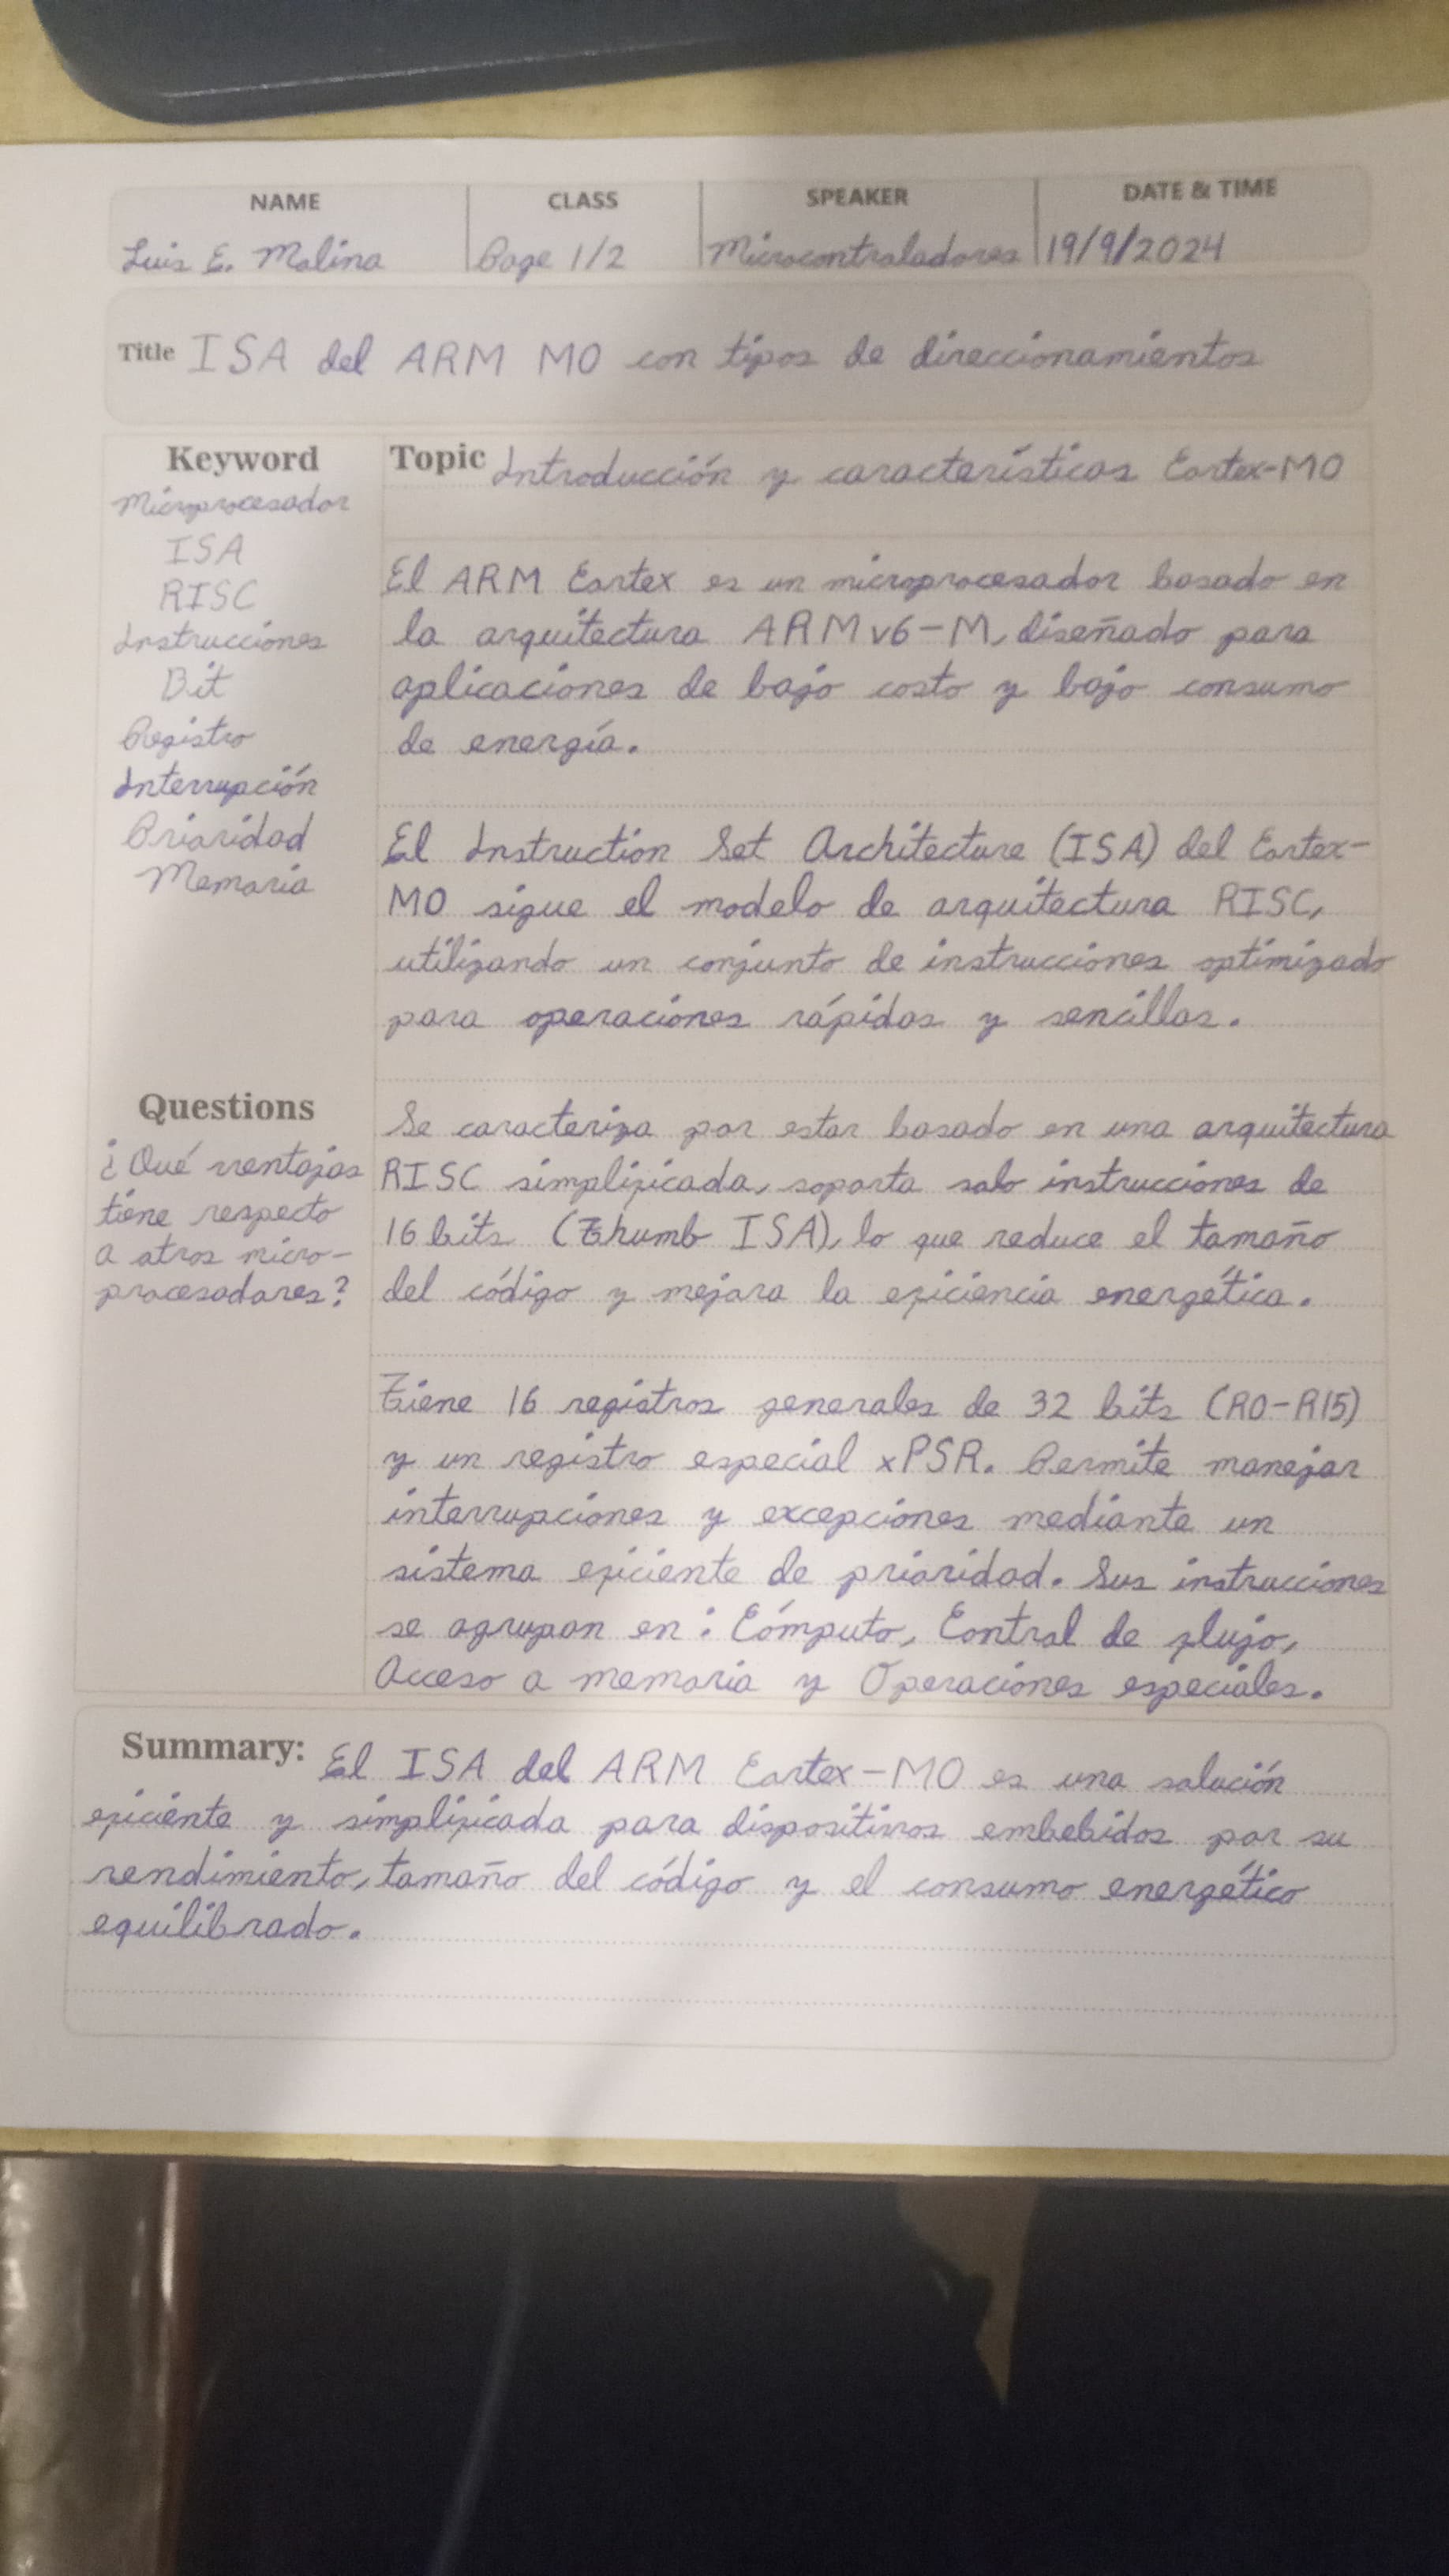 NAME CLASS SPEAKER DATE & TIME
Luis E. Molina Page 1/2 Microcontroladores 19/9/2024
Title ISA del ARM M0 con tipos de direccionamientos
Keyword
Microprocesador
ISA
RISC
Instrucciones
Bit
Registro
Interrupción
Prioridad
Memoria
Questions
¿Qué ventajas
tiene respecto
a otros micro-
procesadores?
Topic Introducción y características Cortex-M0
El ARM Cortex es un microprocesador basado en
la arquitectura ARMv6-M, diseñado para
aplicaciones de bajo costo y bajo consumo
de energía.
El Instruction Set Architecture (ISA) del Cortex-
M0 sigue el modelo de arquitectura RISC,
utilizando un conjunto de instrucciones optimizado
para operaciones rápidas y sencillas.
Se caracteriza por estar basado en una arquitectura
RISC simplificada, soporta solo instrucciones de
16 bits (Thumb ISA), lo que reduce el tamaño
del código y mejora la eficiencia energética.
Tiene 16 registros generales de 32 bits (R0-R15)
y un registro especial xPSR. Permite manejar
interrupciones y excepciones mediante un
sistema eficiente de prioridad. Sus instrucciones
se agrupan en: Cómputo, Control de flujo,
Acceso a memoria y Operaciones especiales.
Summary: El ISA del ARM Cortex-M0 es una solución
eficiente y simplificada para dispositivos embebidos por su
rendimiento, tamaño del código y el consumo energético
equilibrado.